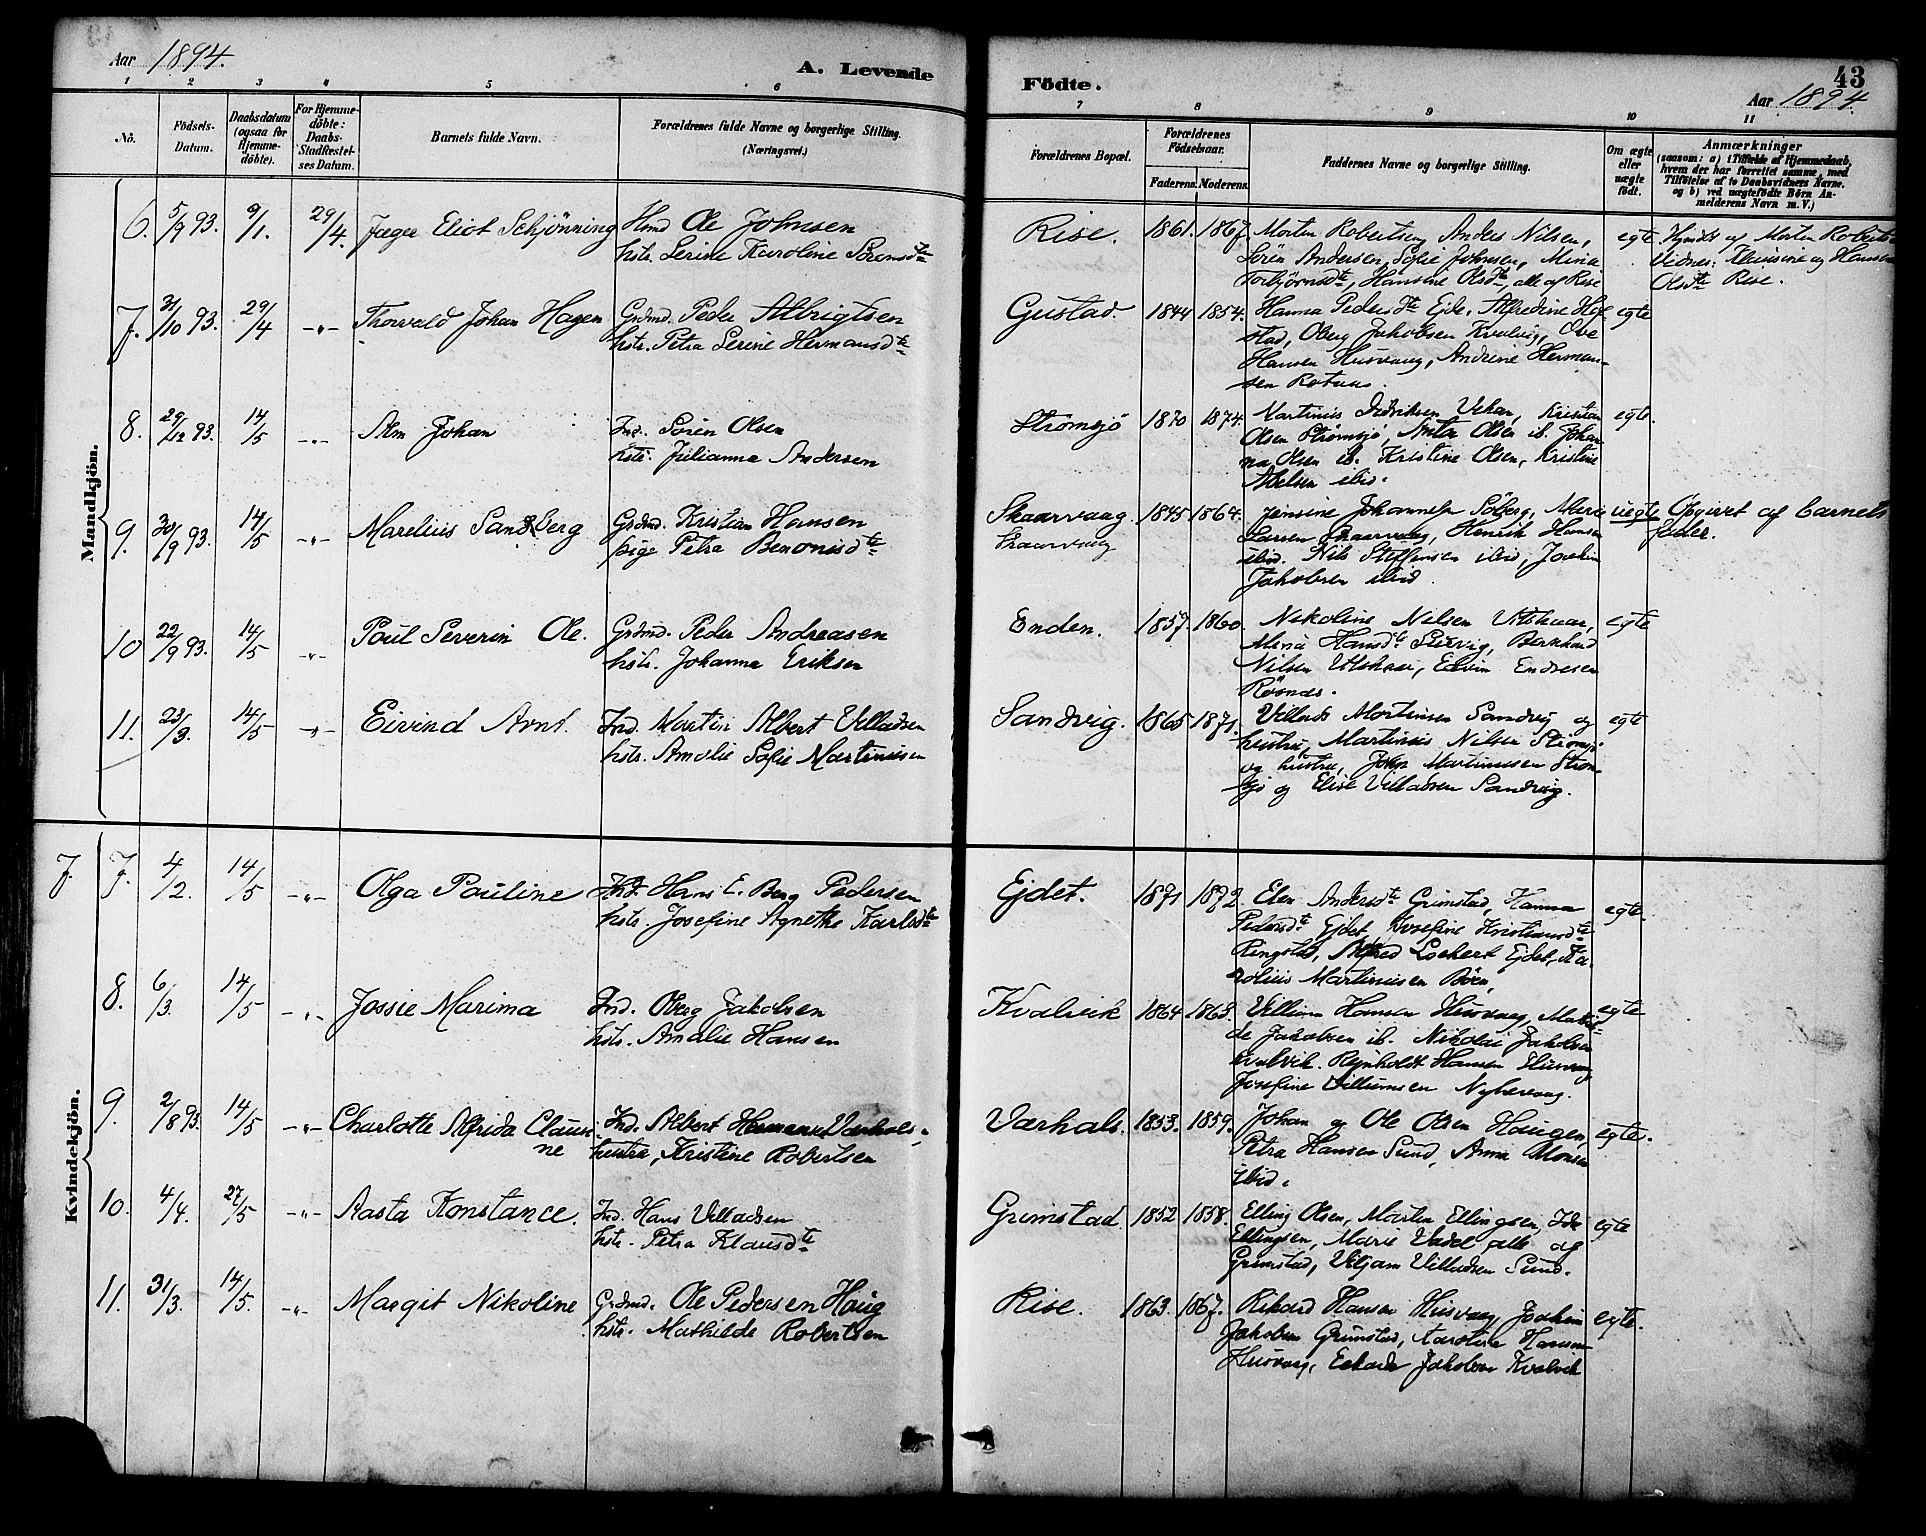 Aar 1894.
A. Levende
Födte.
43
Aar 1894.
1 2 3 4 5 6 7 8 9 10 11
No.
Födsels-Datum.
Daabsdatum (ogsaa for Hjemmedöbte).
For Hjemmedöbte: Daabs-Stadfæstelses Datum.
Barnets fulde Navn.
Forældrenes fulde Navne og borgerlige Stilling. (Næringsvei.)
Forældrenes Bopæl.
Forældrenes Födselsaar.
Faderens. Moderens.
Faddernes Navne og borgerlige Stilling.
Om ægte eller uægte födt.
Anmærkninger
(saasom: a) i Tilfælde af Hjemmedaab, hvem der har forrettet samme, med Tilföielse af to Daabsvidners Navne. og b) ved uægtefödte Börn Anmelderens Navn m. V.)
Mandkjön.
6. 5/9 93. 9/1. 29/4. Jæger Eliot Schjønning Hmd Ole Johnsen Rise. 1861. 1867 Morten Robertsen, Anders Nilsen, egte
hstr. Serine Karoline Sørensdte Sören Andersen, Sofie Johnsen, Mina
Torbjörnsdte, Hansine Olsdte, alle af Rise
Vidner: og Hansine
Olsdte Rise.
7. 31/10 93. 29/4 -"- Thorvald Johan Hagen Grdmd. Peder Albrigtsen Gustad. 1844 1854. Hanna Pedersdte Ejde, Alfredine Hof- egte
hstr. Petra Serine Hermansdte stad, Oberg Jakobsen Kvalvig, Ove
Hansen Husvaag, Andrine Herman-
sen
8. 29/12 93. 14/5 -"- Alm Johan Ind. Sören Olsen Strömsjö 1870 1874. Martinus Fredriksen Kristian egte.
hstr. Julianna Andersen Olsen Strömsjö, Anta Olsen ib. Johan-
na Olsen ib. Kristine Olsen, Kristine
Abelsen ibid.
9. 30/9 93. 14/5 -"- Marelius Sandberg Grdmd. Kristian Hansen Skaarvaag. 1845 1864. Jensine Söberg, uegte Opgivet af barnets
pige Petra Benonisdte Skaarvaag Larsen Skaarvaag, Henrik Hansen fader.
ibid. Nils Steffensen ibid, Joakim
Jakobsen ibid.
10 22/9 93. 14/5 -"- Paul Severin Ole. Grdmd. Peder Andreasen Enden. 1857. 1860. Nikoline Nilsen Utskaar, egte
hstr. Johanna Eriksen Mina Hansdte Bernhard
Nilsen Utskaar, Edvin Endresen
Rösnes.
11. 23/3. 14/5 -"- Eivind Arnt. Ind. Martin Albert Villadsen Sandvig. 1865 1871. Villads Mortensen Sandvig og egte
hstr. Amalie Sofie Martinussen hustru, Martinus Nilsen Strömsjö
og hustru, Johan Martinussen Ström-
sjö og Elise Villadsen Sandvig.
Kvindekjön.
7 7. 4/2. 14/5 -"- Olga Pauline Ind. Hans E. Berg Pedersen Ejdet. 1871 1872 Elen Andersdte Grimstad, Hanna egte.
hstr. Josefine Agnethe Karlsdte Pedersdte Ejdet, Josefine Kristiansdte
Ringstad, Alfred Lockert Ejdet, Ka-
rolius Martinussen Böen,
8. 6/3. 14/5 -"- Jossie Marima Ind. Oberg Jakobsen Kvalvik 1864 1863. Villiam Hansen Husvaag, Matil- egte
hstr. Amalie Hansen de Jakobsen ib. Nikolai Jakobsen
Kvalvik. Rejnholdt Hansen Husvaag
Josefine Villumsen
9. 2/8 93. 14/5 -"- Charlotte Alfrida Claus- Ind. Albert Hermans. Varhals, Varhals. 1853. 1859. Johan og Ole Olsen Haugen, egte.
ne hustru, Kristine Robertsen Petra Hansen Sund, Anna Monsen
ibid.
10. 4/4. 27/5 -"- Aasta Konstance. Ind. Hans Villadsen Grimstad 1852 1858. Elling Olsen, Martin Ellingsen, Ida egte
hstr. Petra Klausdte Ellingsen, Marie Vadel alle af
Grimstad, Viljam Villadsen Sund.
11. 31/3. 14/5. -"- Margit Nikoline Grdmd. Ole Pedersen Haug Rise. 1863. 1867. Rikard Hansen Husvaag, Joakim egte.
hstr. Mathilde Robertsen Jakobsen Grimstad, Karoline Hansen
Husvaag, Jakobsen Kvalvik